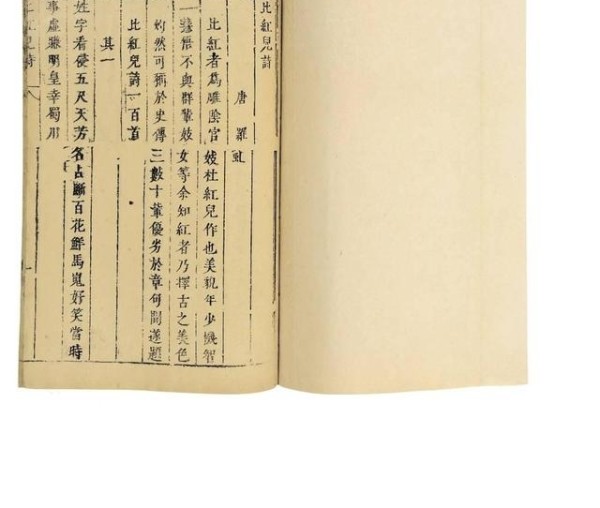 比紅兒詩
唐 羅虬
比紅者爲雕陰官妓杜紅兒作也美貌年少機智
慧悟不與群輩妓女等余知紅者乃擇古之美色
灼然可稱於史傳三數十輩優劣於章句間遂題
比紅兒詩一百首
其一
姓字看侵五尺天芳名占斷百花鮮馬嵬好笑當時
事虛賺明皇幸蜀川
紅兒詩